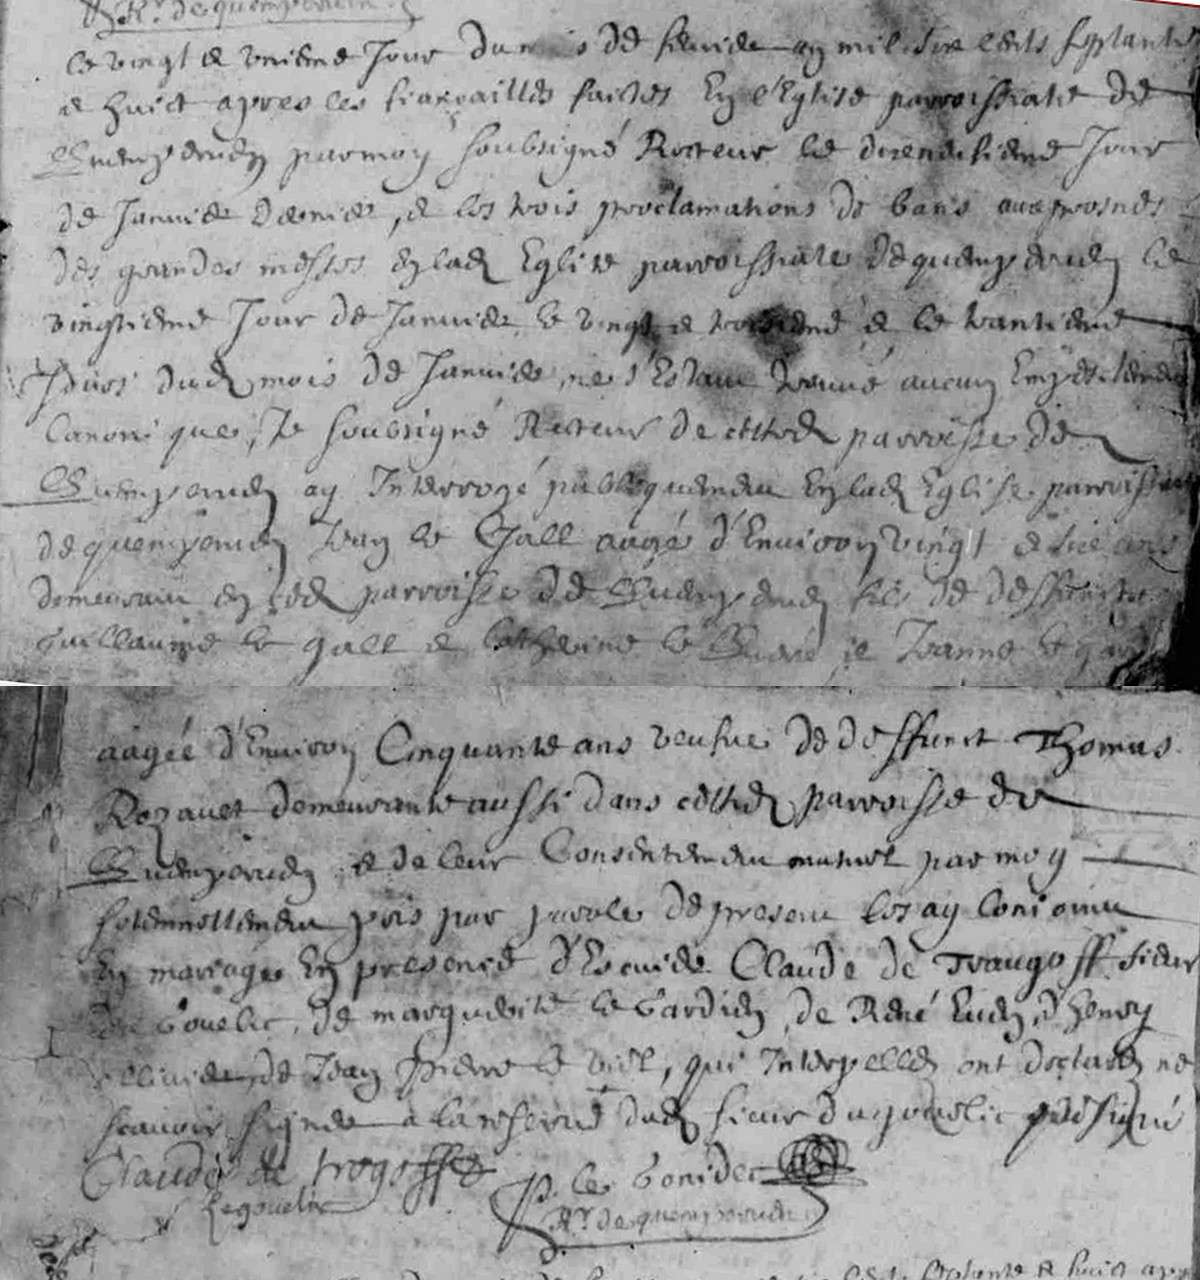 Rr de quemperven
Le vingt et unieme Jour du mois de fevrier an mil six cents septante
et huict apres les fiançailles faites En l'Eglise parroissiale de
Quemperven par moy soubsigné Recteur le Jour
de Janvier dernier, et les trois proclamations de bans aux prosnes
des grandes messes en lad Eglise parroissiale de quemperven le
vingtieme Jour de Janvier le vingt et troisieme et le trantieme
Jours dud mois de Janvier, ne s'Estant trouvé aucun Empechement
Canonique, Je soubsigné Recteur de cetted parroisse de
Quemperven ay Interrogé publiquement En lad Eglise parroissiale
de quemperven Ivan le Gall aagé d'Environ vingt et six ans
demeurant en lad parroisse de Quemperven fils de deffuncts
Guillaume le gall et Catherine le et Jeanne le
aagée d'Environ Cinquante ans veufve de deffunct Thomas
Rozavet demeurante aussi dans cetted parroisse de
Quemperven et de leur Consentement mutuel par moy
solemnellement pris par parole de present les ay Conjoinct
En mariage En presence d'Escuier Claude de Traugoff sieur
du Gouelic, de marguerite le Gardien, de René Euen, d'henry
ollivier, de Jean Pierre le, qui Interpellés ont declaré ne
scavoir signer a la reserve dud sieur du gouelic qui signe
Claude de trogoff
Le gouelic
P. le Gonidec
Rr de quemperven
septante et huict apres